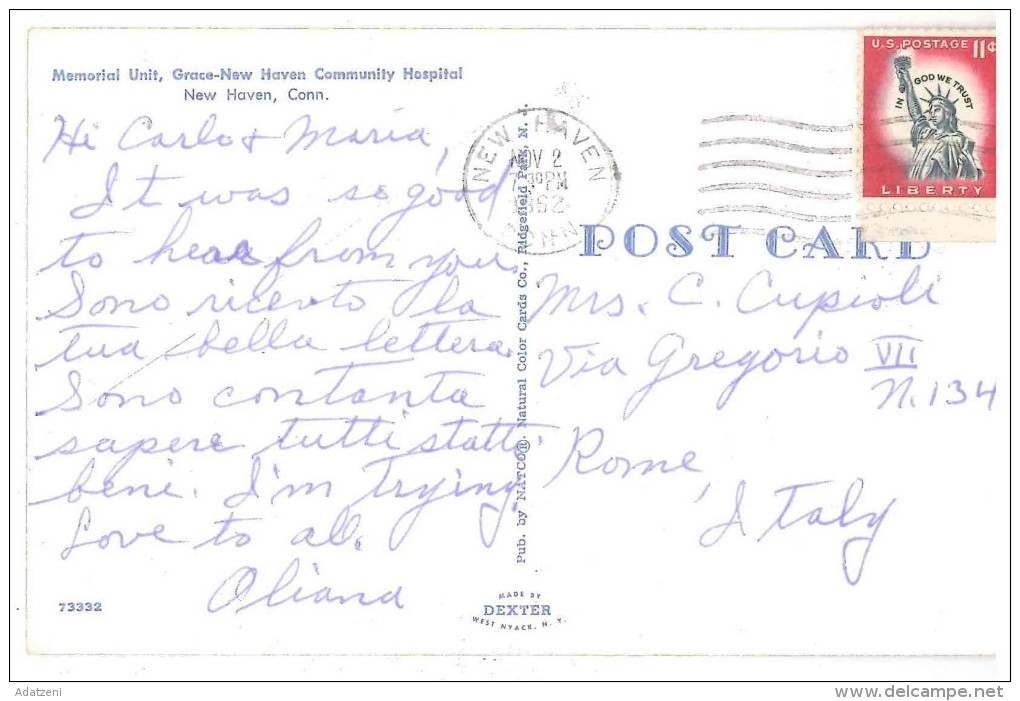 Memorial Unit, Grace-New Haven Community Hospital
New Haven, Conn.
Hi Carlo & Maria,
It was so good
to hear from you.
Sono ricento la
tua bella lettera.
Sono contanta
sapere tutti statte
bene. I'm trying
Love to al.
Oliana
73332
Pub. by NATCO®. Natural Color Cards Co., Ridgefield Park, N. J.
MADE BY
DEXTER
WEST NYACK, N. Y.
NEW HAVEN
NOV 2
PM
1962
CONN
U.S. POSTAGE 11¢
IN GOD WE TRUST
LIBERTY
POST CARD
Mrs. C. Cupioli
Via Gregorio VII
N. 134
Rome,
Italy
Adatzeni
delcampe.net